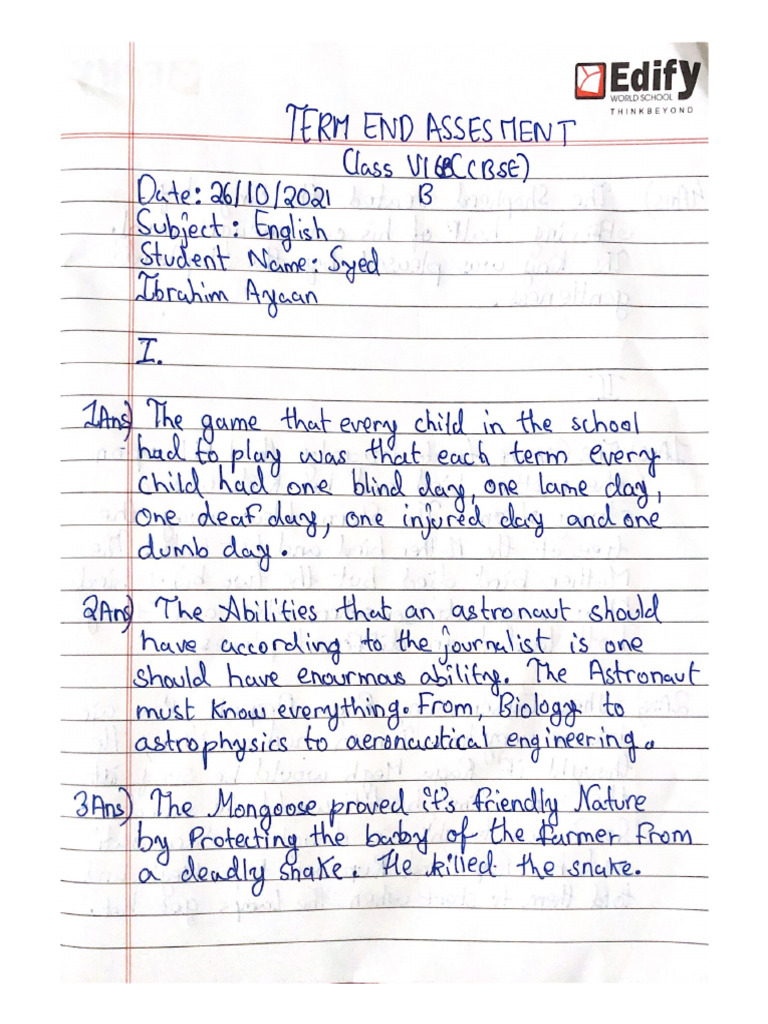 Edify
WORLD SCHOOL
THINKBEYOND
TERM END ASSESMENT
Class VI (CBSE)
Date: 26/10/2021 B
Subject: English
Student Name: Syed
Ibrahim Ayaan
I.
1Ans) The game that every child in the school
had to play was that each term every
child had one blind day, one lame day,
one deaf day, one injured day and one
dumb day.
2Ans) The Abilities that an astronaut should
have according to the journalist is one
should have enourmous ability. The Astronaut
must know everything. From, Biology to
astrophysics to aeronautical engineering.
3Ans) The Mongoose proved it's friendly Nature
by Protecting the baby of the farmer from
a deadly snake. He killed the snake.